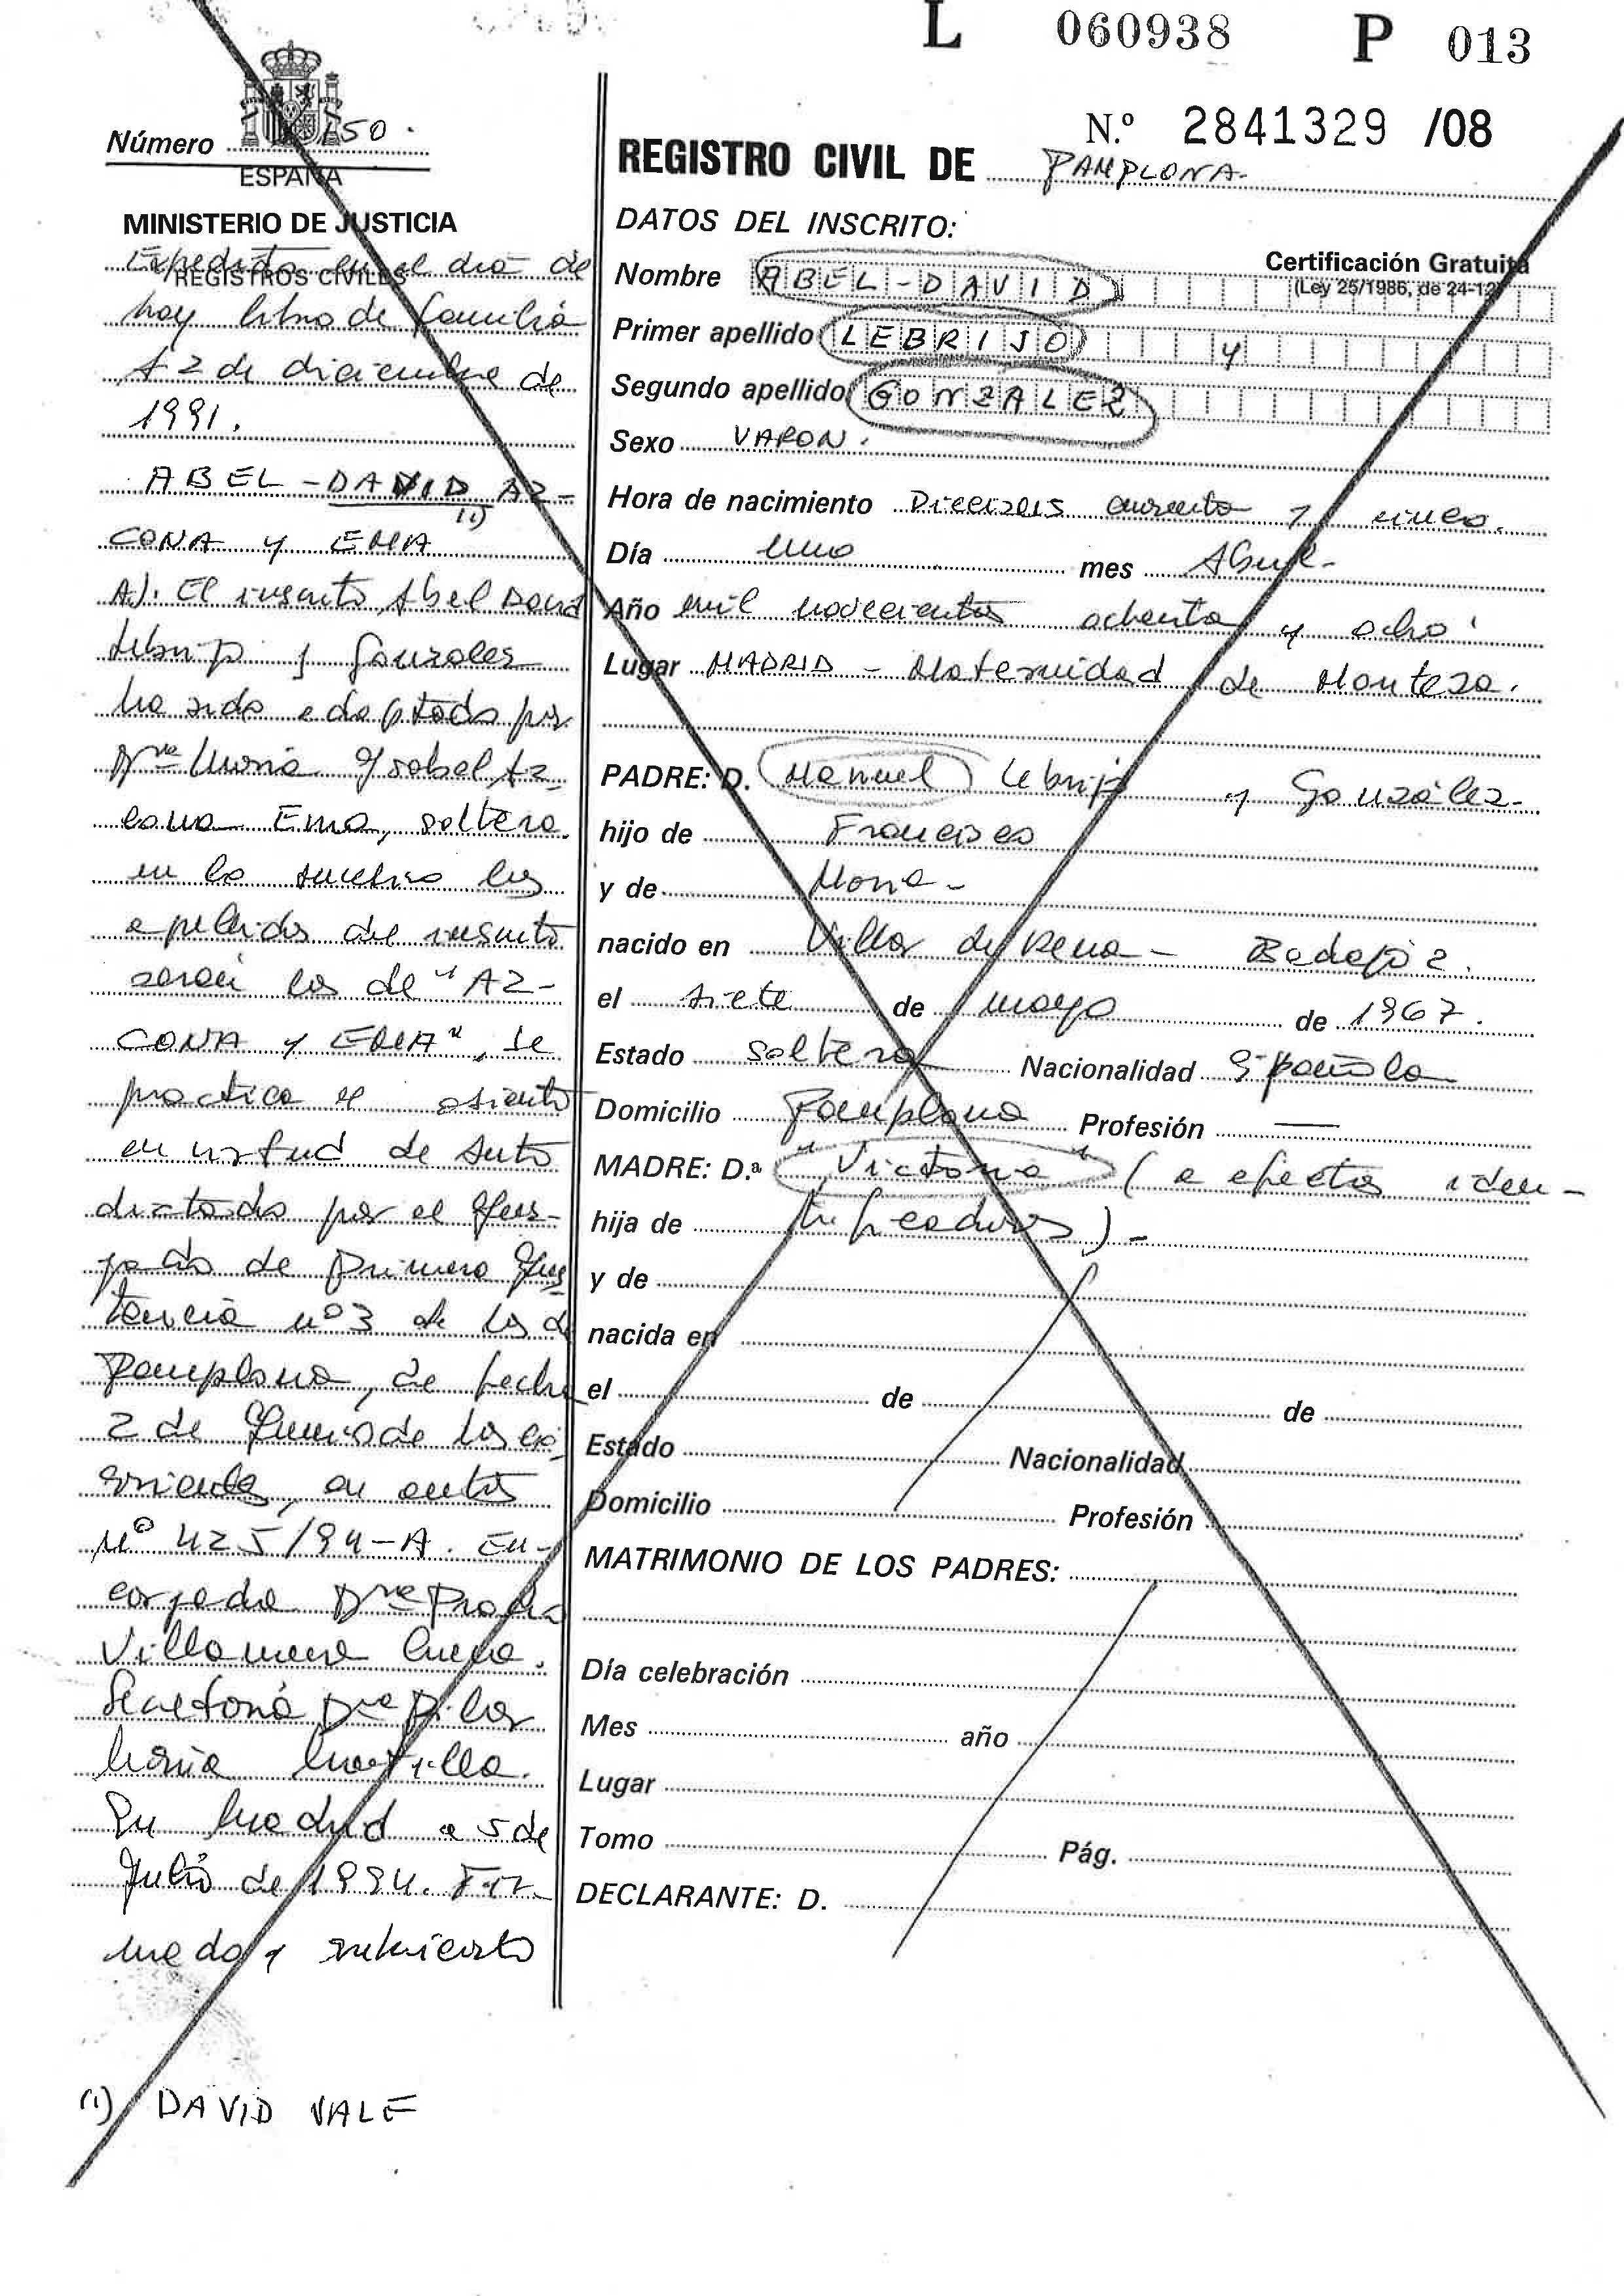 L 060938 P 013
N.º 2841329 /08
Número 150.
ESPAÑA
MINISTERIO DE JUSTICIA
REGISTROS CIVILES
Expedido en el día de
hoy libro de familia
A 2 de diciembre de
1991.
ABEL-DAVID AZ-
(1)
CONA Y EMA
A). El inscrito Abel David
Lebrijo y González
ha sido adoptado por
Dña María Ysabel Az-
cona Ema, soltera.
en lo sucesivo los
apellidos del inscrito
serán los de "AZ-
CONA Y EMA", se
practica el asiento
en virtud de Auto
dictado por el Juz-
gado de Primera Ins-
tancia nº 3 de los de
Pamplona, de fecha
2 de Junio de los co-
rrientes, en autos
Nº 425/94-A. En-
cargada Dña
Villamera
Secretaria Dña Pilar
María
En Madrid a 5 de
Julio de 1994. Fir-
mado y
(1) DAVID VALE
REGISTRO CIVIL DE PAMPLONA-
DATOS DEL INSCRITO:
Certificación Gratuita
(Ley 25/1986, de 24-12)
Nombre ABEL-DAVID
Primer apellido LEBRIJO y
Segundo apellido GONZALEZ
Sexo VARON.
Hora de nacimiento Dieciseis cuarenta y cinco.
Día uno mes Abril-
Año mil novecientos ochenta y ocho
Lugar MADRID - Maternidad de Montesa.
PADRE: D. Manuel Lebrijo y González-
hijo de Francisco
y de María-
nacido en Villar de Rena - Badajoz.
el siete de mayo de 1967.
Estado soltero Nacionalidad Española
Domicilio Pamplona Profesión —
MADRE: D.ª "Victoria" (a efectos iden-
hija de tificadores)-
y de
nacida en
el de de
Estado Nacionalidad
Domicilio Profesión
MATRIMONIO DE LOS PADRES:
Día celebración
Mes año
Lugar
Tomo Pág.
DECLARANTE: D.